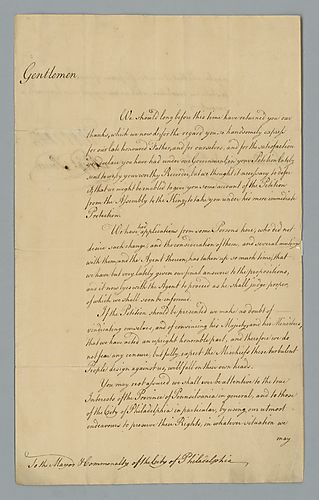 Gentlemen
We should long before this time have returned you our
thanks, which we now do for the regard you so handsomely express
for our late honoured Father, and for ourselves, and for the satisfaction
you declare you have had under our Government, in your Petition lately
sent to us by your worthy Receiver, but we thought it necessary to defer
it, that we might be enabled to give you some account of the Petition
from the Assembly to the King, to take you under his more immediate
Protection.
We have had applications from some Persons here, who did not
desire such change; and the consideration of them, and several meetings
with them, and the Agent thereon, has taken up so much time, that
we have but very lately given our final answers to the propositions,
and it now lyes with the Agent to proceed as he shall judge proper,
of which we shall soon be informed.
If the Petition should be presented we make no doubt of
vindicating ourselves, and of convincing his Majesty, and his Ministers,
that we have acted an upright honorable part, and therefore we do
not fear any censure, but fully expect the Mischiefs these turbulent
People design against us, will fall on their own heads.
You may rest assured we shall ever be attentive to the true
Interests of the Province of Pennsylvania in general, and to those
of the City of Philadelphia in particular, by using our utmost
endeavours to preserve their Rights, in whatever situation we
may
To the Mayor & Commonalty of the City of Philadelphia